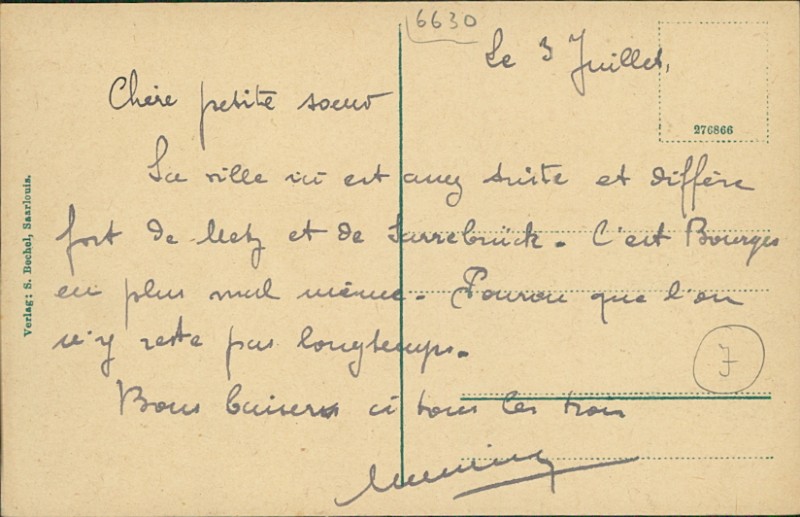 6630
Le 3 Juillet,
276866
Chère petite soeur
La ville ici est assez triste et diffère
fort de Metz et de Sarrebrück. C'est Bourges
en plus mal même. Pourvu que l'on
n'y reste pas longtemps.
Bons baisers à tous les trois
7
Verlag: S. Bechel, Saarlouis.